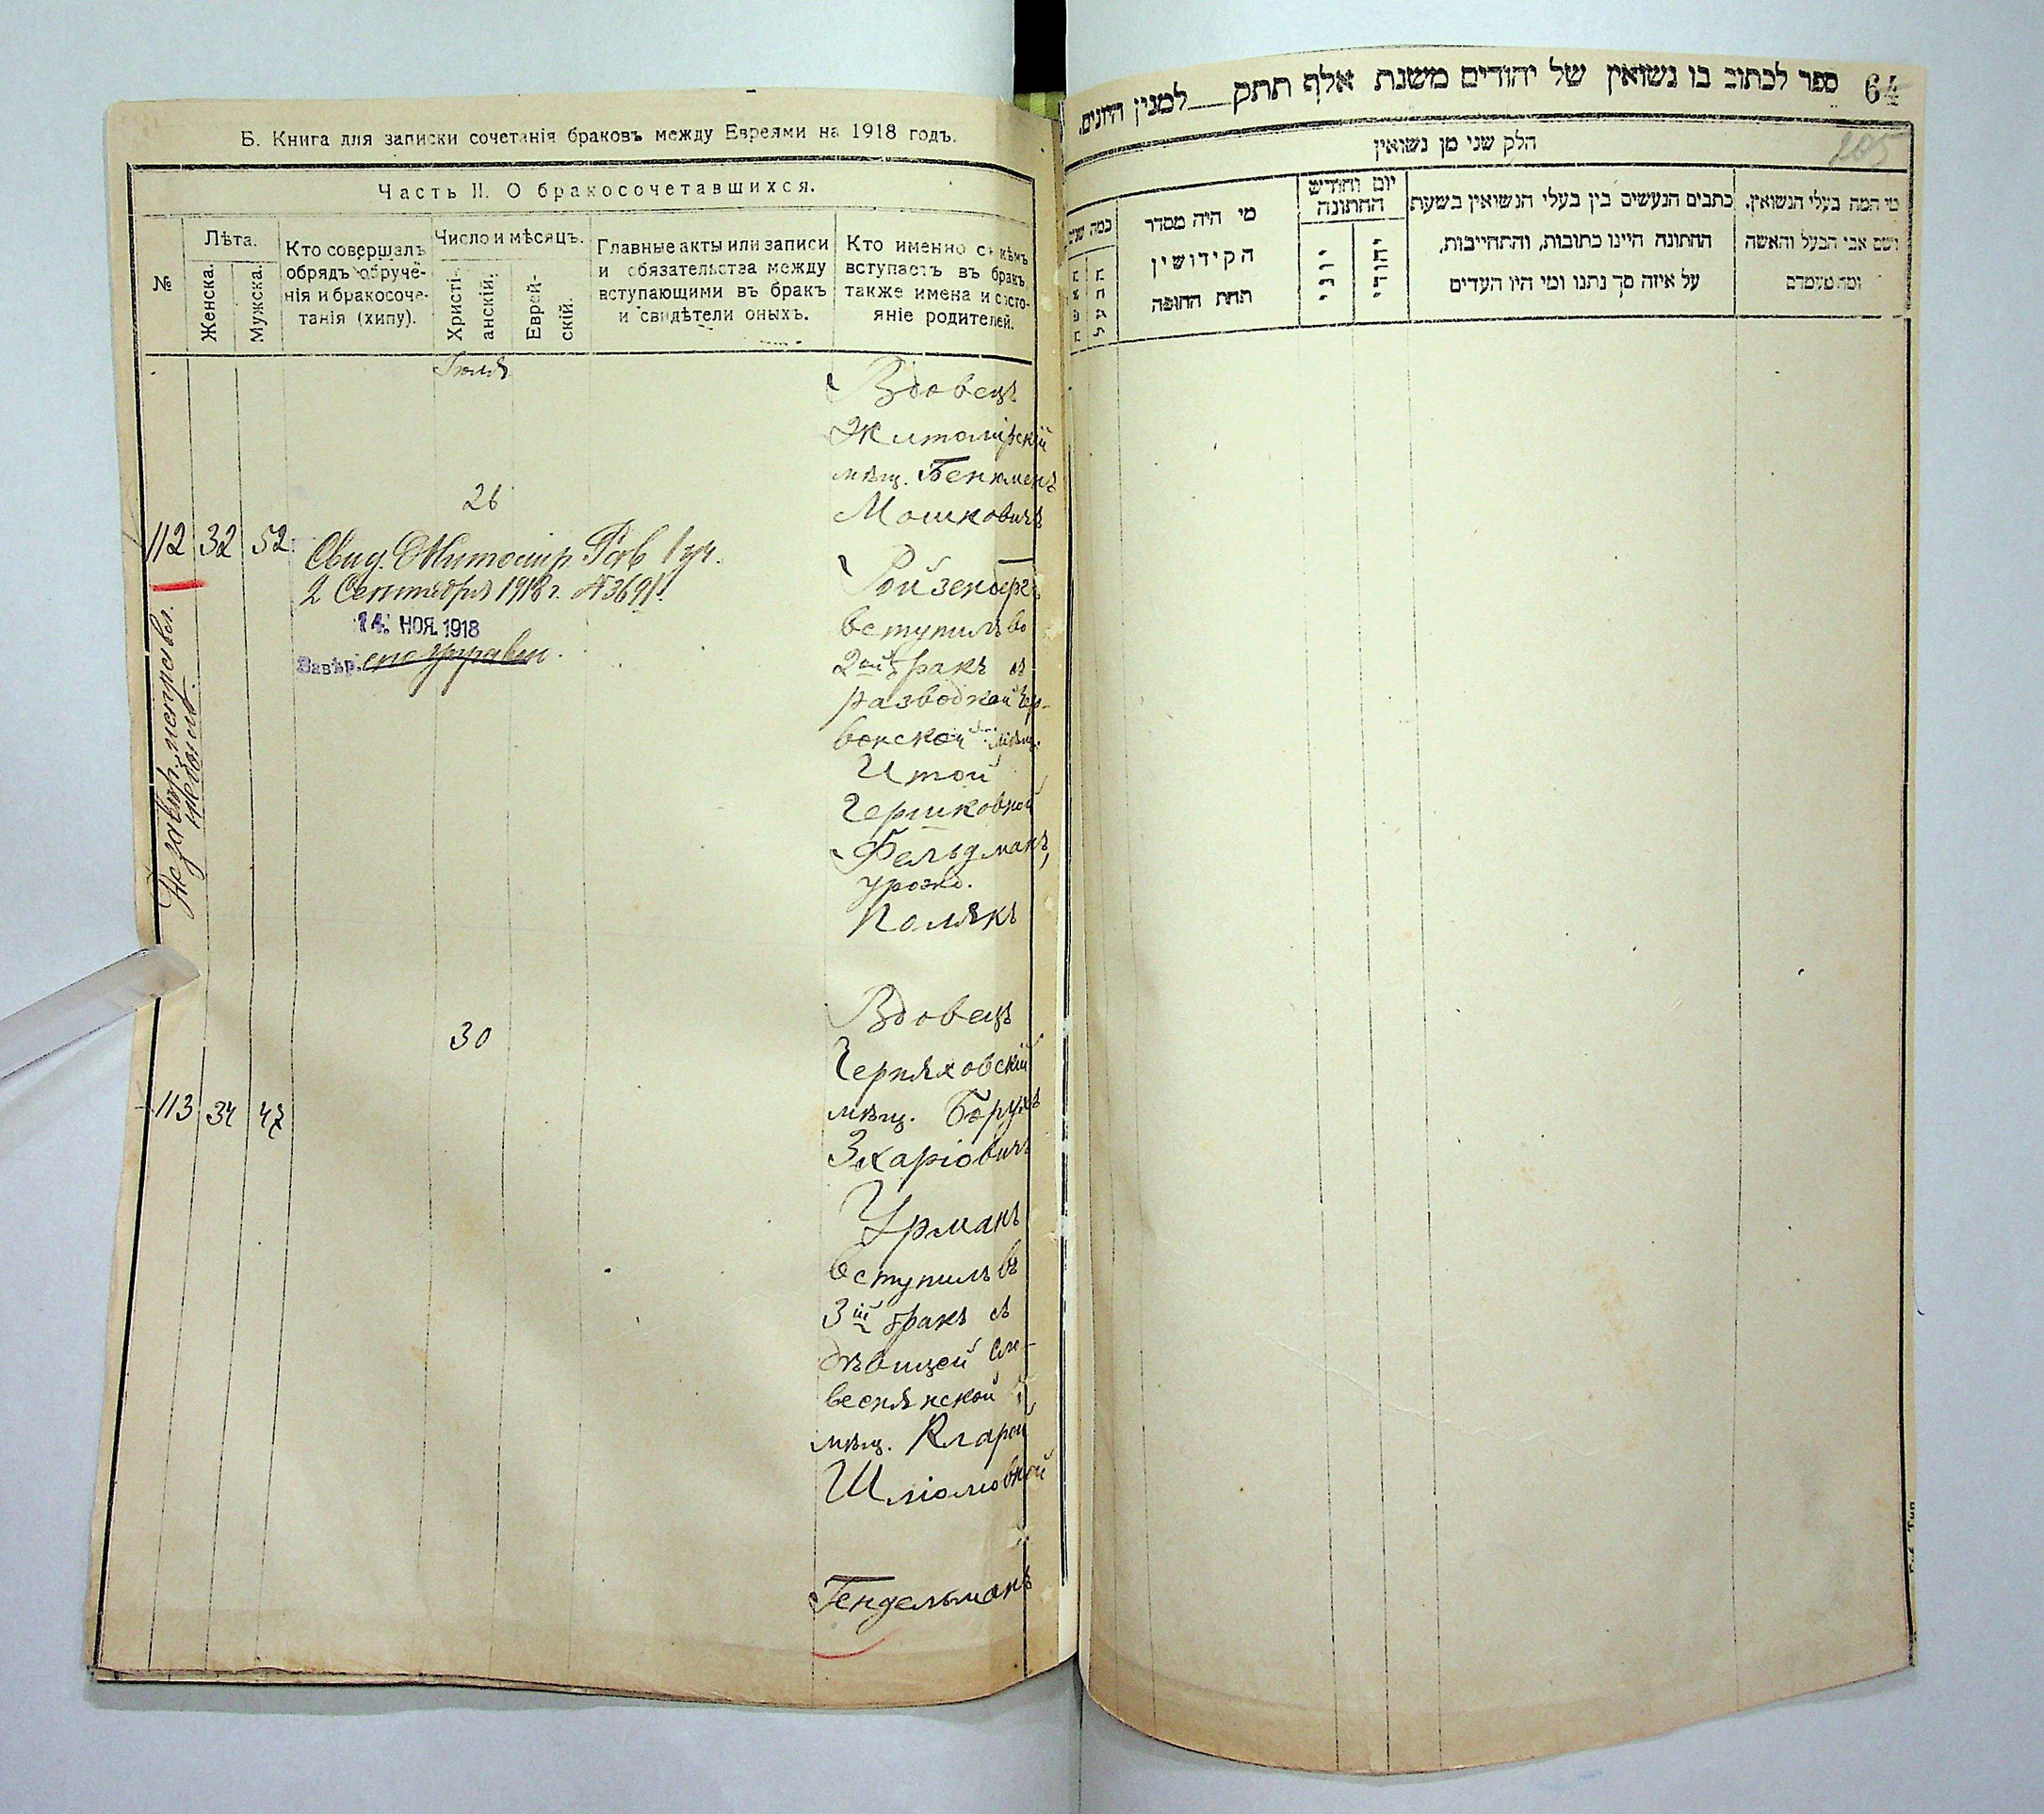 Б. Книга для записки сочетанія браковъ между Евреями на 1918 годъ.
Часть II. О бракосочетавшихся.
№
Лѣта.
Женска.
Мужска.
Кто совершалъ
обрядъ обруче-
нія и бракосоче-
танія (хипу).
Число и мѣсяцъ.
Христі-
анскій.
Еврей-
скій.
Главные акты или записи
и обязательства между
вступающими въ бракъ
и свидѣтели оныхъ.
Кто именно съ кѣмъ
вступаетъ въ бракъ,
также имена и состо-
яніе родителей.
Іюля
26
112 32 52
Свид. Житомір. Рав 1 уч.
2 Сентября 1918 г. №3691.
14. НОЯ. 1918
Завѣр.
Вдовецъ
Житомірскій
мѣщ. Бенюменъ
Мошковичъ
Ройзенбергъ
вступилъ во
2ой бракъ съ
разводкой Чер-
вонской мѣщ.
Итой
Гершковной
Фельдманъ,
урожд.
Полякъ
30
113 34 47
Вдовецъ
Черняховскій
мѣщ. Борухъ
Зхаріовичъ
Урманъ
вступилъ въ
3ій бракъ съ
дѣвицей Сло-
веснянской
мѣщ. Кларой
Шліомовной
Гендельманъ
64
ספר לכתוב בו נשואין של יהודים משנת אלף תתק למנין היונים.
205
חלק שני מן נשואין
מי המה בעלי הנשואין.
ושם אבי הבעל והאשה
ומה מעמדם
כתבים הנעשים בין בעלי הנשואין בשעת
החתונה היינו כתובות, והתחייבות,
על איזה סך נתנו ומי היו העדים
יום וחודש
החתונה
יהודי
יוני
מי היה מסדר
הקידושין
תחת החופה
כמה שנים